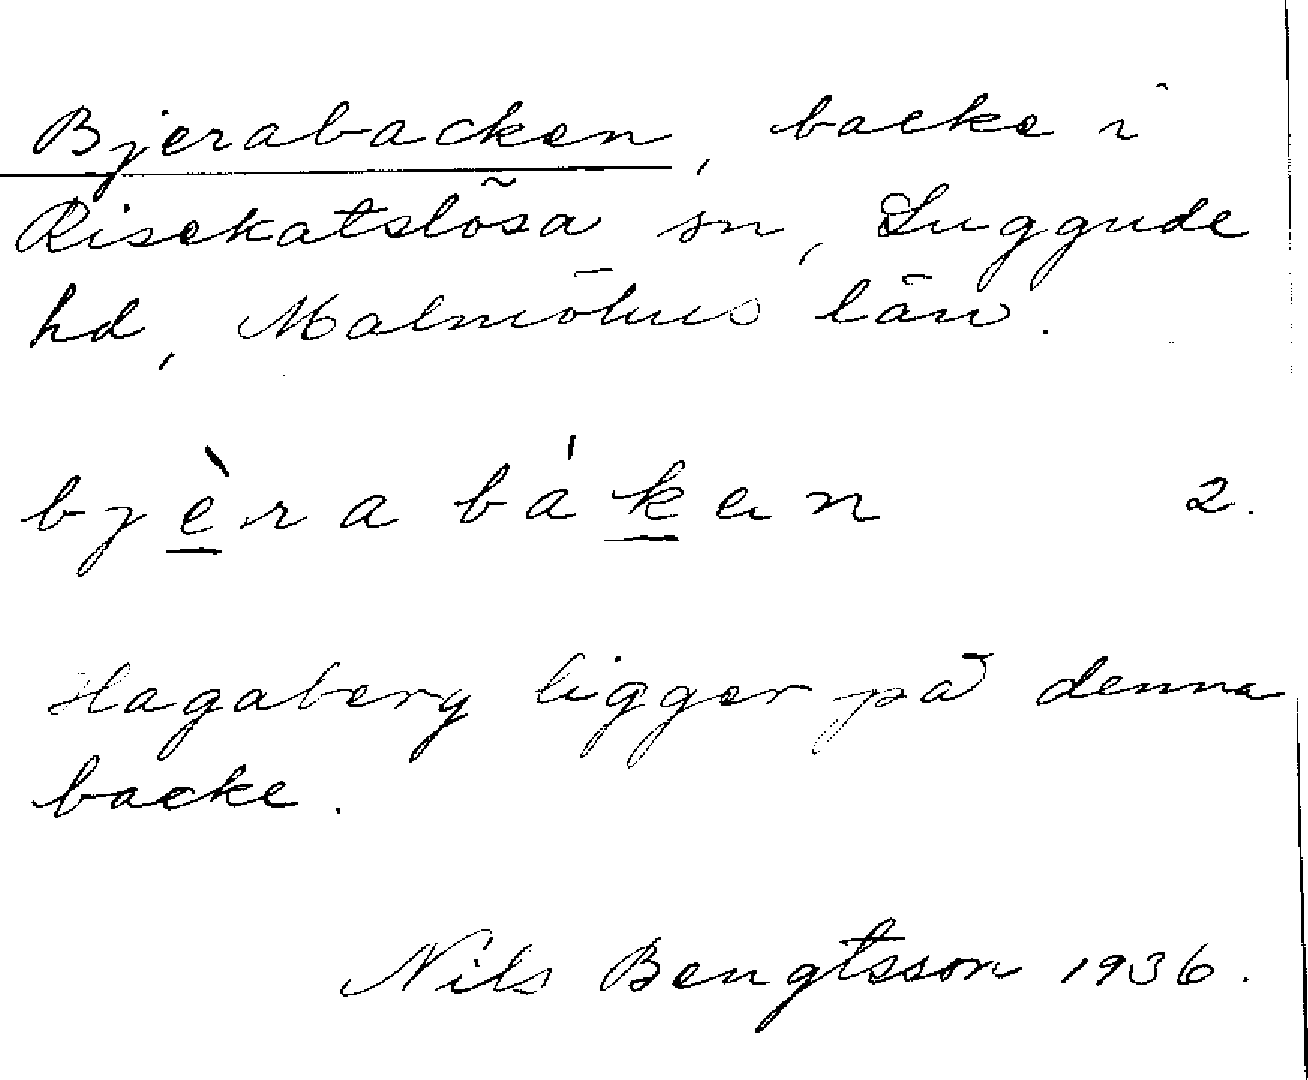 Bjerabacken, backe i
Risekatslösa sn, Luggude
hd, Malmöhus län.
bjèrabáken 2.
Hagaberg ligger på denna
backe.
Nils Bengtsson 1936.